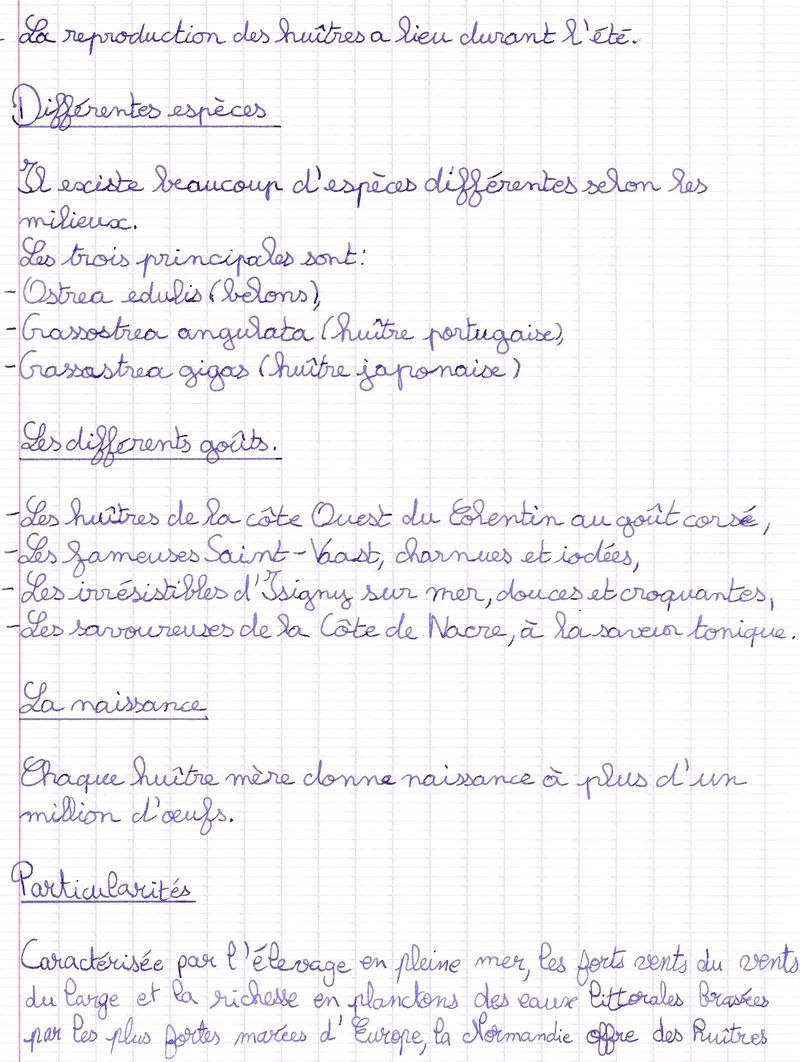 - La reproduction des huîtres a lieu durant l'été.
Différentes espèces
Il existe beaucoup d'espèces différentes selon les
milieux.
Les trois principales sont:
- Ostrea edulis (belons),
- Crassostrea angulata (huître portugaise),
- Crassastrea gigas (huître japonaise)
Les différents goûts.
- Les huîtres de la côte Ouest du Cotentin au goût corsé,
- Les fameuses Saint-Vaast, charnues et iodées,
- Les irrésistibles d'Isigny sur mer, douces et croquantes,
- Les savoureuses de la Côte de Nacre, à la saveur tonique.
La naissance
Chaque huître mère donne naissance à plus d'un
million d'œufs.
Particularités
Caractérisée par l'élevage en pleine mer, les forts vents du vents
du large et la richesse en planctons des eaux littorales brassées
par les plus fortes marées d'Europe, la Normandie offre des huîtres